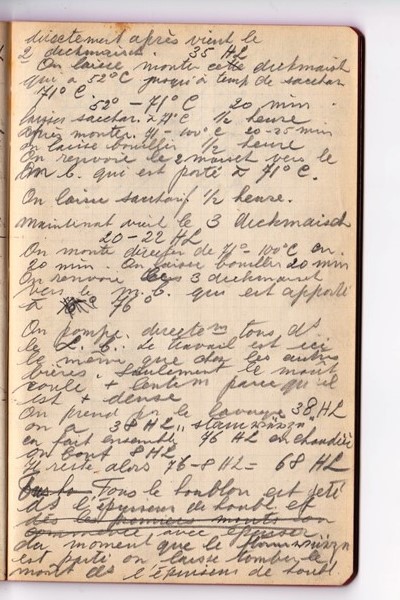 directement après vient le
2 dickmaisch. 35 HL
On laisse monter cette dickmaisch
qui a 52°C jusqu'à temp de sacchar.
71° C.
52° – 71° C 20 min.
laisser sacchar. à 71° C ½ heure
Après monter 71 – 100° C 20-25 min
on laisse bouillir ½ heure
On renvoie le 2 maisch vers le
m b. qui est porté à 71° C.
On laisse saccharif. ½ heure.
maintenant vient le 3 dickmaisch
20 – 22 HL
On monte direct de 71° – 100°C en
20 min. On laisse bouillir 20 min
On renvoie le 3 dickmaisch
vers le m. b. qui est apporté
à 76°
On pompe directem tous ds
le L. b. Le travail est ici
le même que chez les autres
bières. Seulement le moût
coule + lentem parce qu'il
est + dense
On prend pr le lavage 38 HL
on a 38 HL „stamwürze"
en fait ensemble 76 HL en chaudière
on bout 8 HL
Il reste alors 76-8 HL = 68 HL
Tous le houblon est jeté
ds l'épuiseur de houbl. et
dès les premiers mouts son
commencé avec épuiser
du moment que le stamwürze
est parti on laisse tomber le
moût ds l'épuiseur de houbl